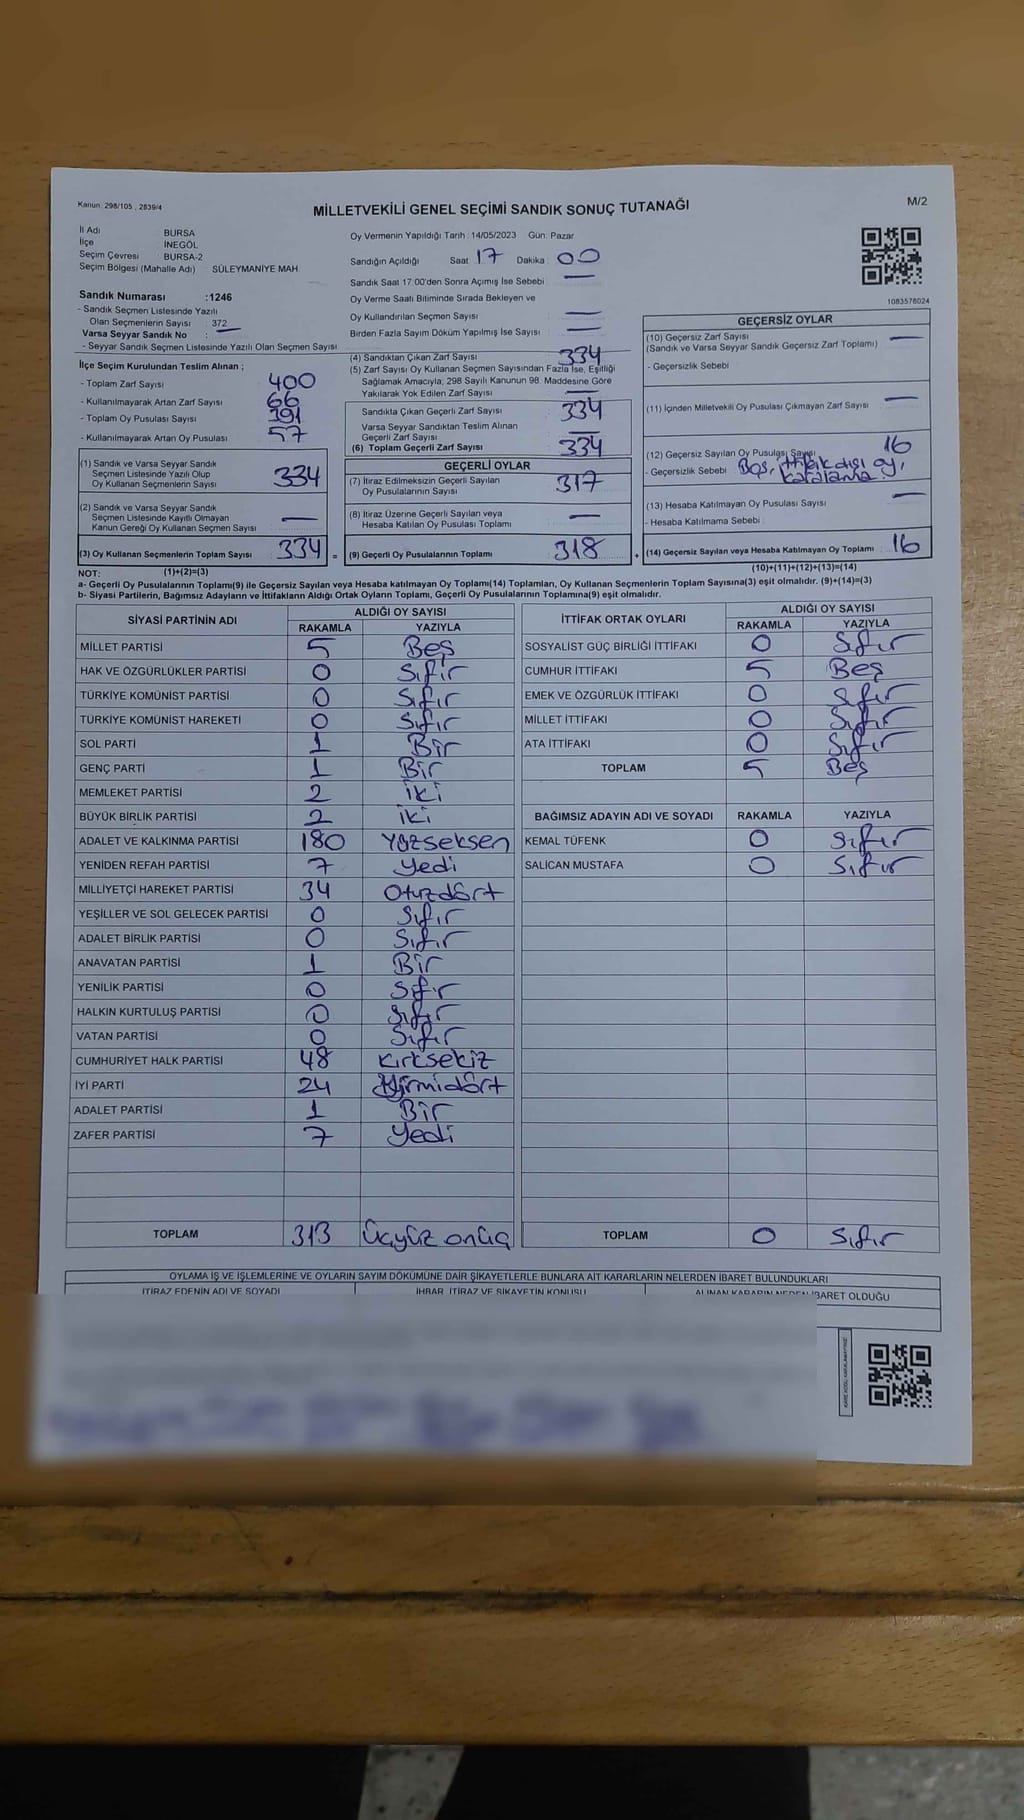 Kanun: 298/105 , 2839/4
MİLLETVEKİLİ GENEL SEÇİMİ SANDIK SONUÇ TUTANAĞI
M/2
İl Adı BURSA
İlçe İNEGÖL
Seçim Çevresi BURSA-2
Seçim Bölgesi (Mahalle Adı) SÜLEYMANİYE MAH.
Sandık Numarası :1246
- Sandık Seçmen Listesinde Yazılı
Olan Seçmenlerin Sayısı : 372
Varsa Seyyar Sandık No : —
- Seyyar Sandık Seçmen Listesinde Yazılı Olan Seçmen Sayısı
Oy Vermenin Yapıldığı Tarih :14/05/2023 Gün: Pazar
Sandığın Açıldığı Saat 17 Dakika : 00
Sandık Saat 17:00'den Sonra Açımış İse Sebebi : —
Oy Verme Saati Bitiminde Sırada Bekleyen ve
Oy Kullandırılan Seçmen Sayısı : —
Birden Fazla Sayım Döküm Yapılmış İse Sayısı : —
1083578024
İlçe Seçim Kurulundan Teslim Alınan ;
- Toplam Zarf Sayısı : 400
- Kullanılmayarak Artan Zarf Sayısı : 66
- Toplam Oy Pusulası Sayısı : 391
- Kullanılmayarak Artan Oy Pusulası : 57
(1) Sandık ve Varsa Seyyar Sandık
Seçmen Listesinde Yazılı Olup
Oy Kullanan Seçmenlerin Sayısı 334
(2) Sandık ve Varsa Seyyar Sandık
Seçmen Listesinde Kayıtlı Olmayan
Kanun Gereği Oy Kullanan Seçmen Sayısı —
(3) Oy Kullanan Seçmenlerin Toplam Sayısı 334 =
(4) Sandıktan Çıkan Zarf Sayısı 334
(5) Zarf Sayısı Oy Kullanan Seçmen Sayısından Fazla İse, Eşitliği
Sağlamak Amacıyla; 298 Sayılı Kanunun 98. Maddesine Göre
Yakılarak Yok Edilen Zarf Sayısı —
Sandıkta Çıkan Geçerli Zarf Sayısı 334
Varsa Seyyar Sandıktan Teslim Alınan
Geçerli Zarf Sayısı —
(6) Toplam Geçerli Zarf Sayısı 334
GEÇERLİ OYLAR
(7) İtiraz Edilmeksizin Geçerli Sayılan
Oy Pusulalarının Sayısı 317
(8) İtiraz Üzerine Geçerli Sayılan veya
Hesaba Katılan Oy Pusulası Toplamı —
(9) Geçerli Oy Pusulalarının Toplamı 318 +
GEÇERSİZ OYLAR
(10) Geçersiz Zarf Sayısı —
(Sandık ve Varsa Seyyar Sandık Geçersiz Zarf Toplamı)
- Geçersizlik Sebebi
(11) İçinden Milletvekili Oy Pusulası Çıkmayan Zarf Sayısı —
(12) Geçersiz Sayılan Oy Pusulası Sayısı 16
- Geçersizlik Sebebi Boş, ittifak dışı oy,
karalama.
(13) Hesaba Katılmayan Oy Pusulası Sayısı —
- Hesaba Katılmama Sebebi :
(14) Geçersiz Sayılan veya Hesaba Katılmayan Oy Toplamı 16
NOT: (1)+(2)=(3)
(10)+(11)+(12)+(13)=(14)
a- Geçerli Oy Pusulalarının Toplamı(9) ile Geçersiz Sayılan veya Hesaba katılmayan Oy Toplamı(14) Toplamları, Oy Kullanan Seçmenlerin Toplam Sayısına(3) eşit olmalıdır. (9)+(14)=(3)
b- Siyasi Partilerin, Bağımsız Adayların ve İttifakların Aldığı Ortak Oyların Toplamı, Geçerli Oy Pusulalarının Toplamına(9) eşit olmalıdır.
SİYASİ PARTİNİN ADI ALDIĞI OY SAYISI
RAKAMLA YAZIYLA
MİLLET PARTİSİ 5 Beş
HAK VE ÖZGÜRLÜKLER PARTİSİ 0 Sıfır
TÜRKİYE KOMÜNİST PARTİSİ 0 Sıfır
TÜRKİYE KOMÜNİST HAREKETİ 0 Sıfır
SOL PARTİ 1 Bir
GENÇ PARTİ 1 Bir
MEMLEKET PARTİSİ 2 iki
BÜYÜK BİRLİK PARTİSİ 2 iki
ADALET VE KALKINMA PARTİSİ 180 Yüzseksen
YENİDEN REFAH PARTİSİ 7 Yedi
MİLLİYETÇİ HAREKET PARTİSİ 34 Otuzdört
YEŞİLLER VE SOL GELECEK PARTİSİ 0 Sıfır
ADALET BİRLİK PARTİSİ 0 Sıfır
ANAVATAN PARTİSİ 1 Bir
YENİLİK PARTİSİ 0 Sıfır
HALKIN KURTULUŞ PARTİSİ 0 Sıfır
VATAN PARTİSİ 0 Sıfır
CUMHURİYET HALK PARTİSİ 48 Kırksekiz
İYİ PARTİ 24 Yirmidört
ADALET PARTİSİ 1 Bir
ZAFER PARTİSİ 7 Yedi
TOPLAM 313 Üçyüz onüç
İTTİFAK ORTAK OYLARI ALDIĞI OY SAYISI
RAKAMLA YAZIYLA
SOSYALİST GÜÇ BİRLİĞİ İTTİFAKI 0 Sıfır
CUMHUR İTTİFAKI 5 Beş
EMEK VE ÖZGÜRLÜK İTTİFAKI 0 Sıfır
MİLLET İTTİFAKI 0 Sıfır
ATA İTTİFAKI 0 Sıfır
TOPLAM 5 Beş
BAĞIMSIZ ADAYIN ADI VE SOYADI RAKAMLA YAZIYLA
KEMAL TÜFENK 0 Sıfır
SALİCAN MUSTAFA 0 Sıfır
TOPLAM 0 Sıfır
OYLAMA İŞ VE İŞLEMLERİNE VE OYLARIN SAYIM DÖKÜMÜNE DAİR ŞİKAYETLERLE BUNLARA AİT KARARLARIN NELERDEN İBARET BULUNDUKLARI
İTİRAZ EDENİN ADI VE SOYADI İHBAR, İTİRAZ VE ŞİKAYETİN KONUSU ALINAN KARARIN NEDEN İBARET OLDUĞU